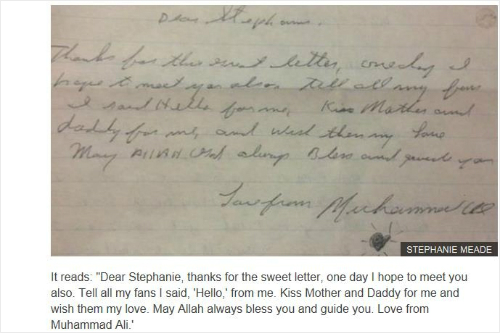 Dear Stephanie,
Thanks for the sweet letter, one day I
hope to meet you also. tell all my fans
I said Hello for me, Kiss Mother and
daddy for me, and wish them my love
May ALLAH always Bless and guide you
Love from Muhammad Ali
STEPHANIE MEADE
It reads: "Dear Stephanie, thanks for the sweet letter, one day I hope to meet you
also. Tell all my fans I said, 'Hello,' from me. Kiss Mother and Daddy for me and
wish them my love. May Allah always bless you and guide you. Love from
Muhammad Ali.'